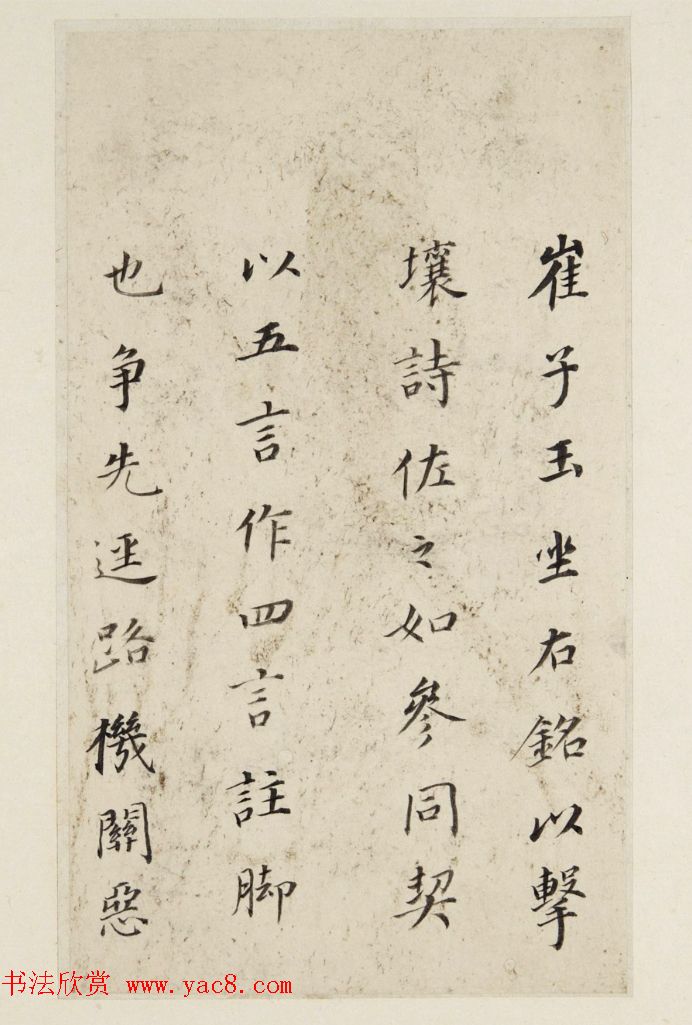 崔子玉坐右銘以擊
壤詩佐之如參同契
以五言作四言註脚
也争先逕路機關惡
书法欣赏 www.yac8.com